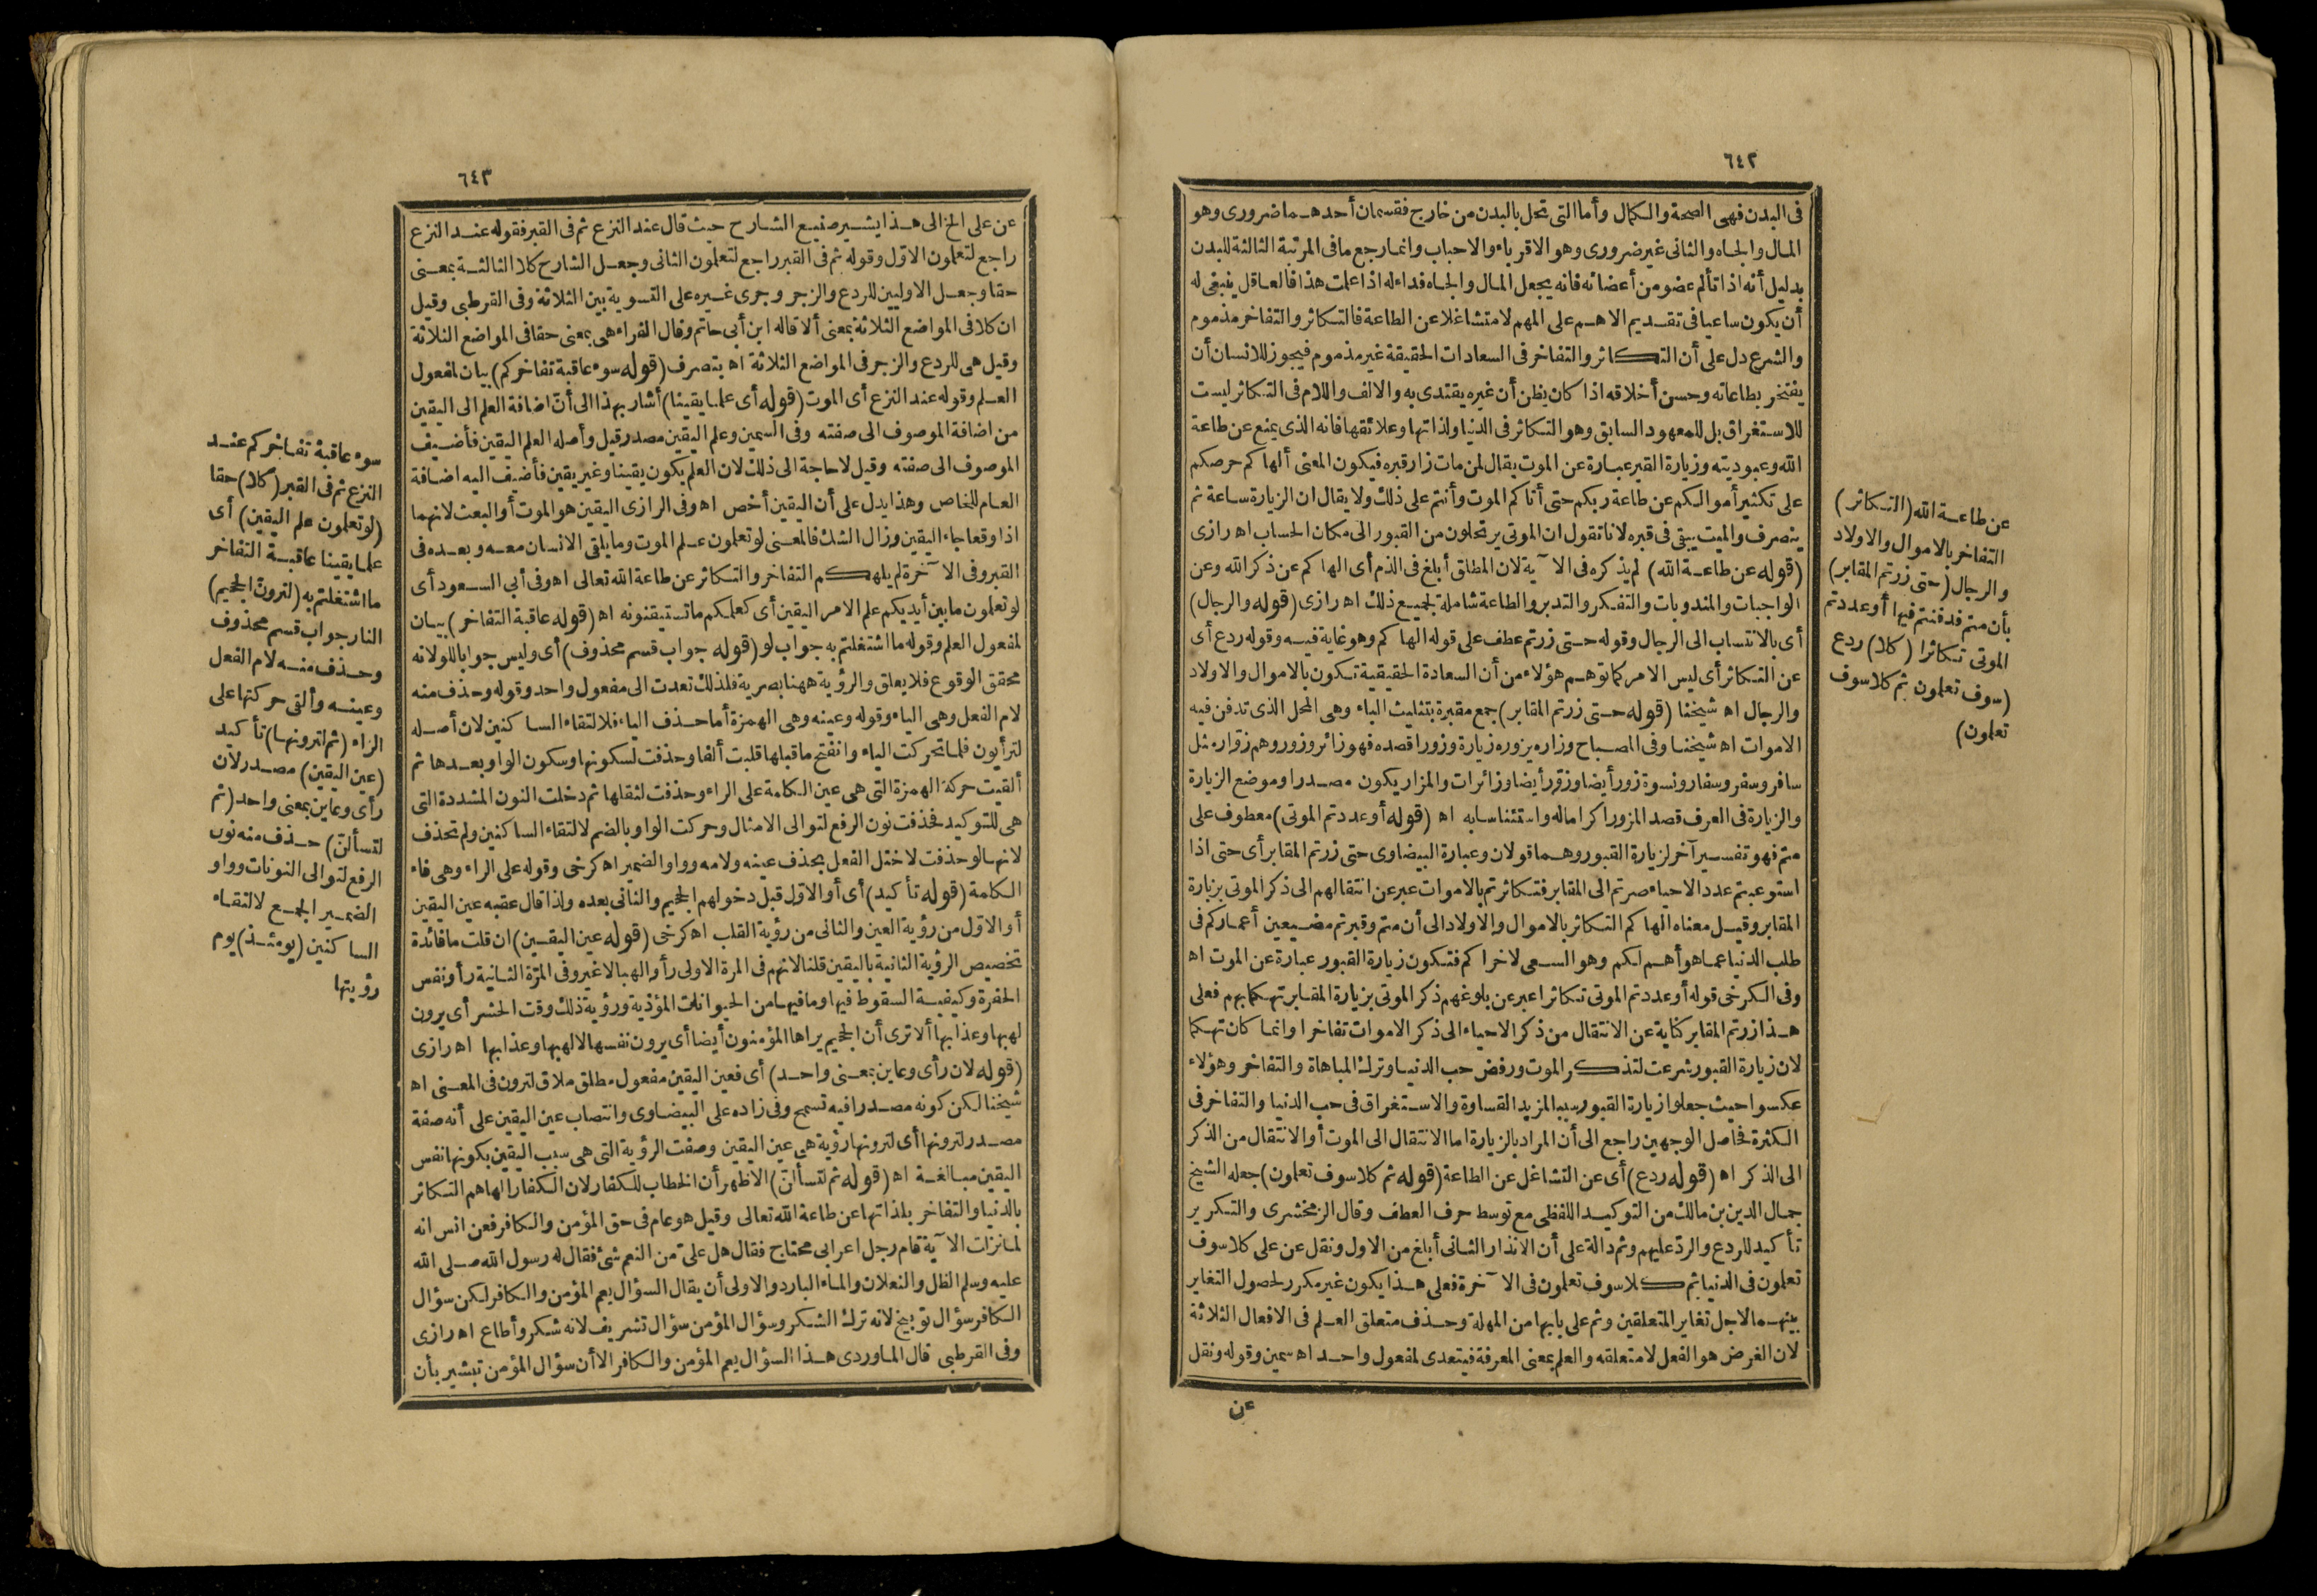 ٦٤٢
فى البدن فهى الصحة والكمال وأما التى تحل بالبدن من خارج فقسمان أحدهما ضرورى وهو
المال والجاه والثانى غير ضرورى وهو الاقرباء والاحباب وانما رجع ما فى المرتبة الثالثة للبدن
بدليل أنه اذا تألم عضو من أعضائه فانه يجعل المال والجاه فداء له اذا علمت هذا فالعاقل ينبغى له
أن يكون ساعيا فى تقديم الاهم على المهم لامتشاغلا عن الطاعة فالتكاثر والتفاخر مذموم
والشرع دل على أن التكاثر والتفاخر فى السعادات الحقيقة غير مذموم فيجوز للانسان أن
يفتخر بطاعاته وحسن أخلاقه اذا كان يظن أن غيره يقتدى به والالف واللام فى التكاثر ليست
للاستغراق بل للمعهود السابق وهو التكاثر فى الدنيا ولذاتها وعلائقها فانه الذى يمنع عن طاعة
الله وعبوديته وزيارة القبر عبارة عن الموت يقال لمن مات زار قبره فيكون المعنى ألهاكم حرصكم
على تكثير أموالكم عن طاعة ربكم حتى أتاكم الموت وأنتم على ذلك ولا يقال ان الزيارة ساعة ثم
ينصرف والميت يبقى فى قبره لانا نقول ان الموتى يرتحلون من القبور الى مكان الحساب اه رازى
(قوله عن طاعة الله) لم يذكره فى الآية لان المطلق أبلغ فى الذم أى الهاكم عن ذكر الله وعن
الواجبات والمندوبات والتفكر والتدبر والطاعة شاملة لجميع ذلك اه رازى (قوله والرجال)
أى بالانتساب الى الرجال وقوله حتى زرتم عطف على قوله الهاكم وهو غاية فيه وقوله ردع أى
عن التكاثر أى ليس الامر كما توهم هؤلاء من أن السعادة الحقيقية تكون بالاموال والاولاد
والرجال اه شيخنا (قوله حتى زرتم المقابر) جمع مقبرة بتثليث الباء وهى المحل الذى تدفن فيه
الاموات اه شيخنا وفى المصباح وزاره يزوره زيارة وزورا قصده فهو زائر وزور وهم زوّار مثل
سافر وسفر وسفار ونسوة زور أيضا وزوّر أيضا وزائرات والمزار يكون مصدرا وموضع الزيارة
والزيارة فى العرف قصد المزور اكراما له واستئناسا به اه (قوله أو عددتم الموتى) معطوف على
متم فهو تفسير آخر لزيارة القبور وهما قولان وعبارة البيضاوى حتى زرتم المقابر أى حتى اذا
استوعبتم عدد الاحياء صرتم الى المقابر فتكاثرتم بالاموات عبر عن انتقالهم الى ذكر الموتى بزيارة
المقابر وقيل معناه الهاكم التكاثر بالاموال والاولاد الى أن متم وقبرتم مضيعين أعماركم فى
طلب الدنيا عما هو أهم لكم وهو السعى لاخراكم فتكون زيارة القبور عبارة عن الموت اه
وفى الكرخى قوله أو عددتم الموتى تكاثرا عبر عن بلوغهم ذكر الموتى بزيارة المقابر تهكما بهم فعلى
هذا زرتم المقابر كناية عن الانتقال من ذكر الاحياء الى ذكر الاموات تفاخرا وانما كان تهكما
لان زيارة القبور شرعت لتذكر الموت ورفض حب الدنيا وترك المباهاة والتفاخر وهؤلاء
عكسوا حيث جعلوا زيارة القبور سببا لمزيد القساوة والاستغراق فى حب الدنيا والتفاخر فى
الكثرة فحاصل الوجهين راجع الى أن المراد بالزيارة اما الانتقال الى الموت أو الانتقال من الذكر
الى الذكر اه (قوله ردع) أى عن التشاغل عن الطاعة (قوله ثم كلا سوف تعلمون) جعله الشيخ
جمال الدين بن مالك من التوكيد اللفظى مع توسط حرف العطف وقال الزمخشرى والتكرير
تأكيد للردع والردّ عليهم وثم دالة على أن الانذار الثانى أبلغ من الاول ونقل عن على كلا سوف
تعلمون فى الدنيا ثم كلا سوف تعلمون فى الآخرة فعلى هذا يكون غير مكرر لحصول التغاير
بينهما لاجل تغاير المتعلقين وثم على بابها من المهلة وحذف متعلق العلم فى الافعال الثلاثة
لان الغرض هو الفعل لا متعلقه والعلم بمعنى المعرفة فيتعدى لمفعول واحد اه سمين وقوله ونقل
عن
عن طاعة الله (التكاثر)
التفاخر بالاموال والاولاد
والرجال (حتى زرتم المقابر)
بأن متم فدفنتم فيها أو عددتم
الموتى تكاثرا (كلا) ردع
(سوف تعلمون ثم كلا سوف
تعلمون)
٦٤٣
عن على الخ الى هذا يشير صنيع الشارح حيث قال عند النزع ثم فى القبر فقوله عند النزع
راجع لتعلمون الاوّل وقوله ثم فى القبر راجع لتعلمون الثانى وجعل الشارح كلا الثالثة بمعنى
حقا وجعل الاوليين للردع والزجر وجرى غيره على التسوية بين الثلاثة وفى القرطبى وقيل
ان كلا فى المواضع الثلاثة بمعنى ألا قاله ابن أبى حاتم وقال الفراء هى بمعنى حقا فى المواضع الثلاثة
وقيل هى للردع والزجر فى المواضع الثلاثة اه بتصرف (قوله سوء عاقبة تفاخركم) بيان لمفعول
العلم وقوله عند النزع أى الموت (قوله أى علما يقينا) أشار بهذا الى أنّ اضافة العلم الى اليقين
من اضافة الموصوف الى صفته وفى السمين وعلم اليقين مصدر قيل وأصله العلم اليقين فأضيف
الموصوف الى صفته وقيل لا حاجة الى ذلك لان العلم يكون يقينا وغير يقين فأضيف اليه اضافة
العام للخاص وهذا يدل على أن اليقين أخص اه وفى الرازى اليقين هو الموت أو البعث لانهما
اذا وقعا جاء اليقين وزال الشك فالمعنى لو تعلمون علم الموت وما يلقى الانسان معه وبعده فى
القبر وفى الآخرة لم يلهكم التفاخر والتكاثر عن طاعة الله تعالى اه وفى أبى السعود أى
لو تعلمون ما بين أيديكم علم الامر اليقين أى كعلمكم ما تستيقنونه اه (قوله عاقبة التفاخر) بيان
لمفعول العلم وقوله ما اشتغلتم به جواب لو (قوله جواب قسم محذوف) أى وليس جوابا للو لانه
محقق الوقوع فلا يعلق والرؤية ههنا بصرية فلذلك تعدت الى مفعول واحد وقوله وحذف منه
لام الفعل وهى الياء وقوله وعينه وهى الهمزة أما حذف الياء فلالتقاء الساكنين لان أصله
لترأيون فلما تحركت الياء وانفتح ما قبلها قلبت ألفا وحذفت لسكونها وسكون الواو بعدها ثم
ألقيت حركة الهمزة التى هى عين الكلمة على الراء وحذفت لثقلها ثم دخلت النون المشددة التى
هى للتوكيد فحذفت نون الرفع لتوالى الامثال وحركت الواو بالضم لالتقاء الساكنين ولم تحذف
لانها لو حذفت لاختل الفعل بحذف عينه ولامه وواو الضمير اه كرخى وقوله على الراء وهى فاء
الكلمة (قوله تأكيد) أى أو الاوّل قبل دخولهم الجحيم والثانى بعده ولذا قال عقبه عين اليقين
أو الاوّل من رؤية العين والثانى من رؤية القلب اه كرخى (قوله عين اليقين) ان قلت ما فائدة
تخصيص الرؤية الثانية باليقين قلنا لانهم فى المرة الاولى رأوا لهبا لا غير وفى المرّة الثانية رأوا نفس
الحفرة وكيفية السقوط فيها وما فيها من الحيوانات المؤذية ورؤية ذلك وقت الحشر أى يرون
لهبها وعذابها ألا ترى أن الجحيم يراها المؤمنون أيضا أى يرون نفسها لا لهبها وعذابها اه رازى
(قوله لان رأى وعاين بمعنى واحد) أى فعين اليقين مفعول مطلق ملاق لترون فى المعنى اه
شيخنا لكن كونه مصدرا فيه تسمح وفى زاده على البيضاوى وانتصاب عين اليقين على أنه صفة
مصدر لترونها أى لترونها رؤية هى عين اليقين وصفت الرؤية التى هى سبب اليقين بكونها نفس
اليقين مبالغة اه (قوله ثم لتسألنّ) الاظهر أن الخطاب للكفار لان الكفار الهاهم التكاثر
بالدنيا والتفاخر بلذاتها عن طاعة الله تعالى وقيل هو عام فى حق المؤمن والكافر فعن انس انه
لما نزلت الآية قام رجل اعرابى محتاج فقال هل علىّ من النعم شئ فقال له رسول الله صلى الله
عليه وسلم الظل والنعلان والماء البارد والاولى أن يقال السؤال يعم المؤمن والكافر لكن سؤال
الكافر سؤال توبيخ لانه ترك الشكر وسؤال المؤمن سؤال تشريف لانه شكر وأطاع اه رازى
وفى القرطبى قال الماوردى هذا السؤال يعم المؤمن والكافر الا أن سؤال المؤمن تبشير بأن
سوء عاقبة تفاخركم عند
النزع ثم فى القبر (كلا) حقا
(لو تعلمون علم اليقين) أى
علما يقينا عاقبة التفاخر
ما اشتغلتم به (لترونّ الجحيم)
النار جواب قسم محذوف
وحذف منه لام الفعل
وعينه وألقى حركتها على
الراء (ثم لترونها) تأكيد
(عين اليقين) مصدر لان
رأى وعاين بمعنى واحد (ثم
لتسألنّ) حذف منه نون
الرفع لتوالى النونات وواو
الضمير الجمع لالتقاء
الساكنين (يومئذ) يوم
رؤيتها